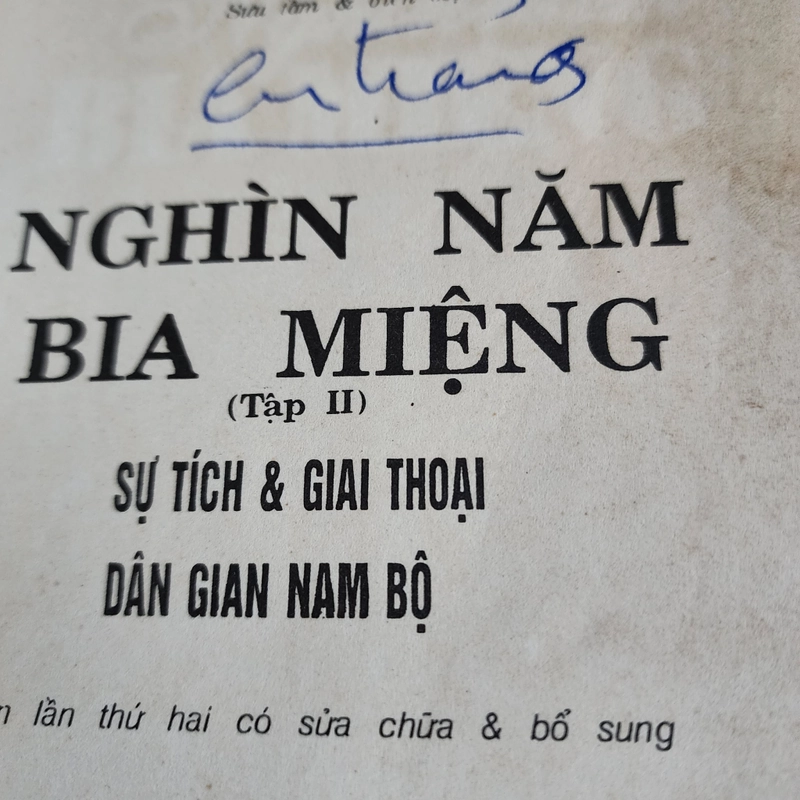 Sưu tầm &
NGHÌN NĂM
BIA MIỆNG
(Tập II)
SỰ TÍCH & GIAI THOẠI
DÂN GIAN NAM BỘ
lần thứ hai có sửa chữa & bổ sung